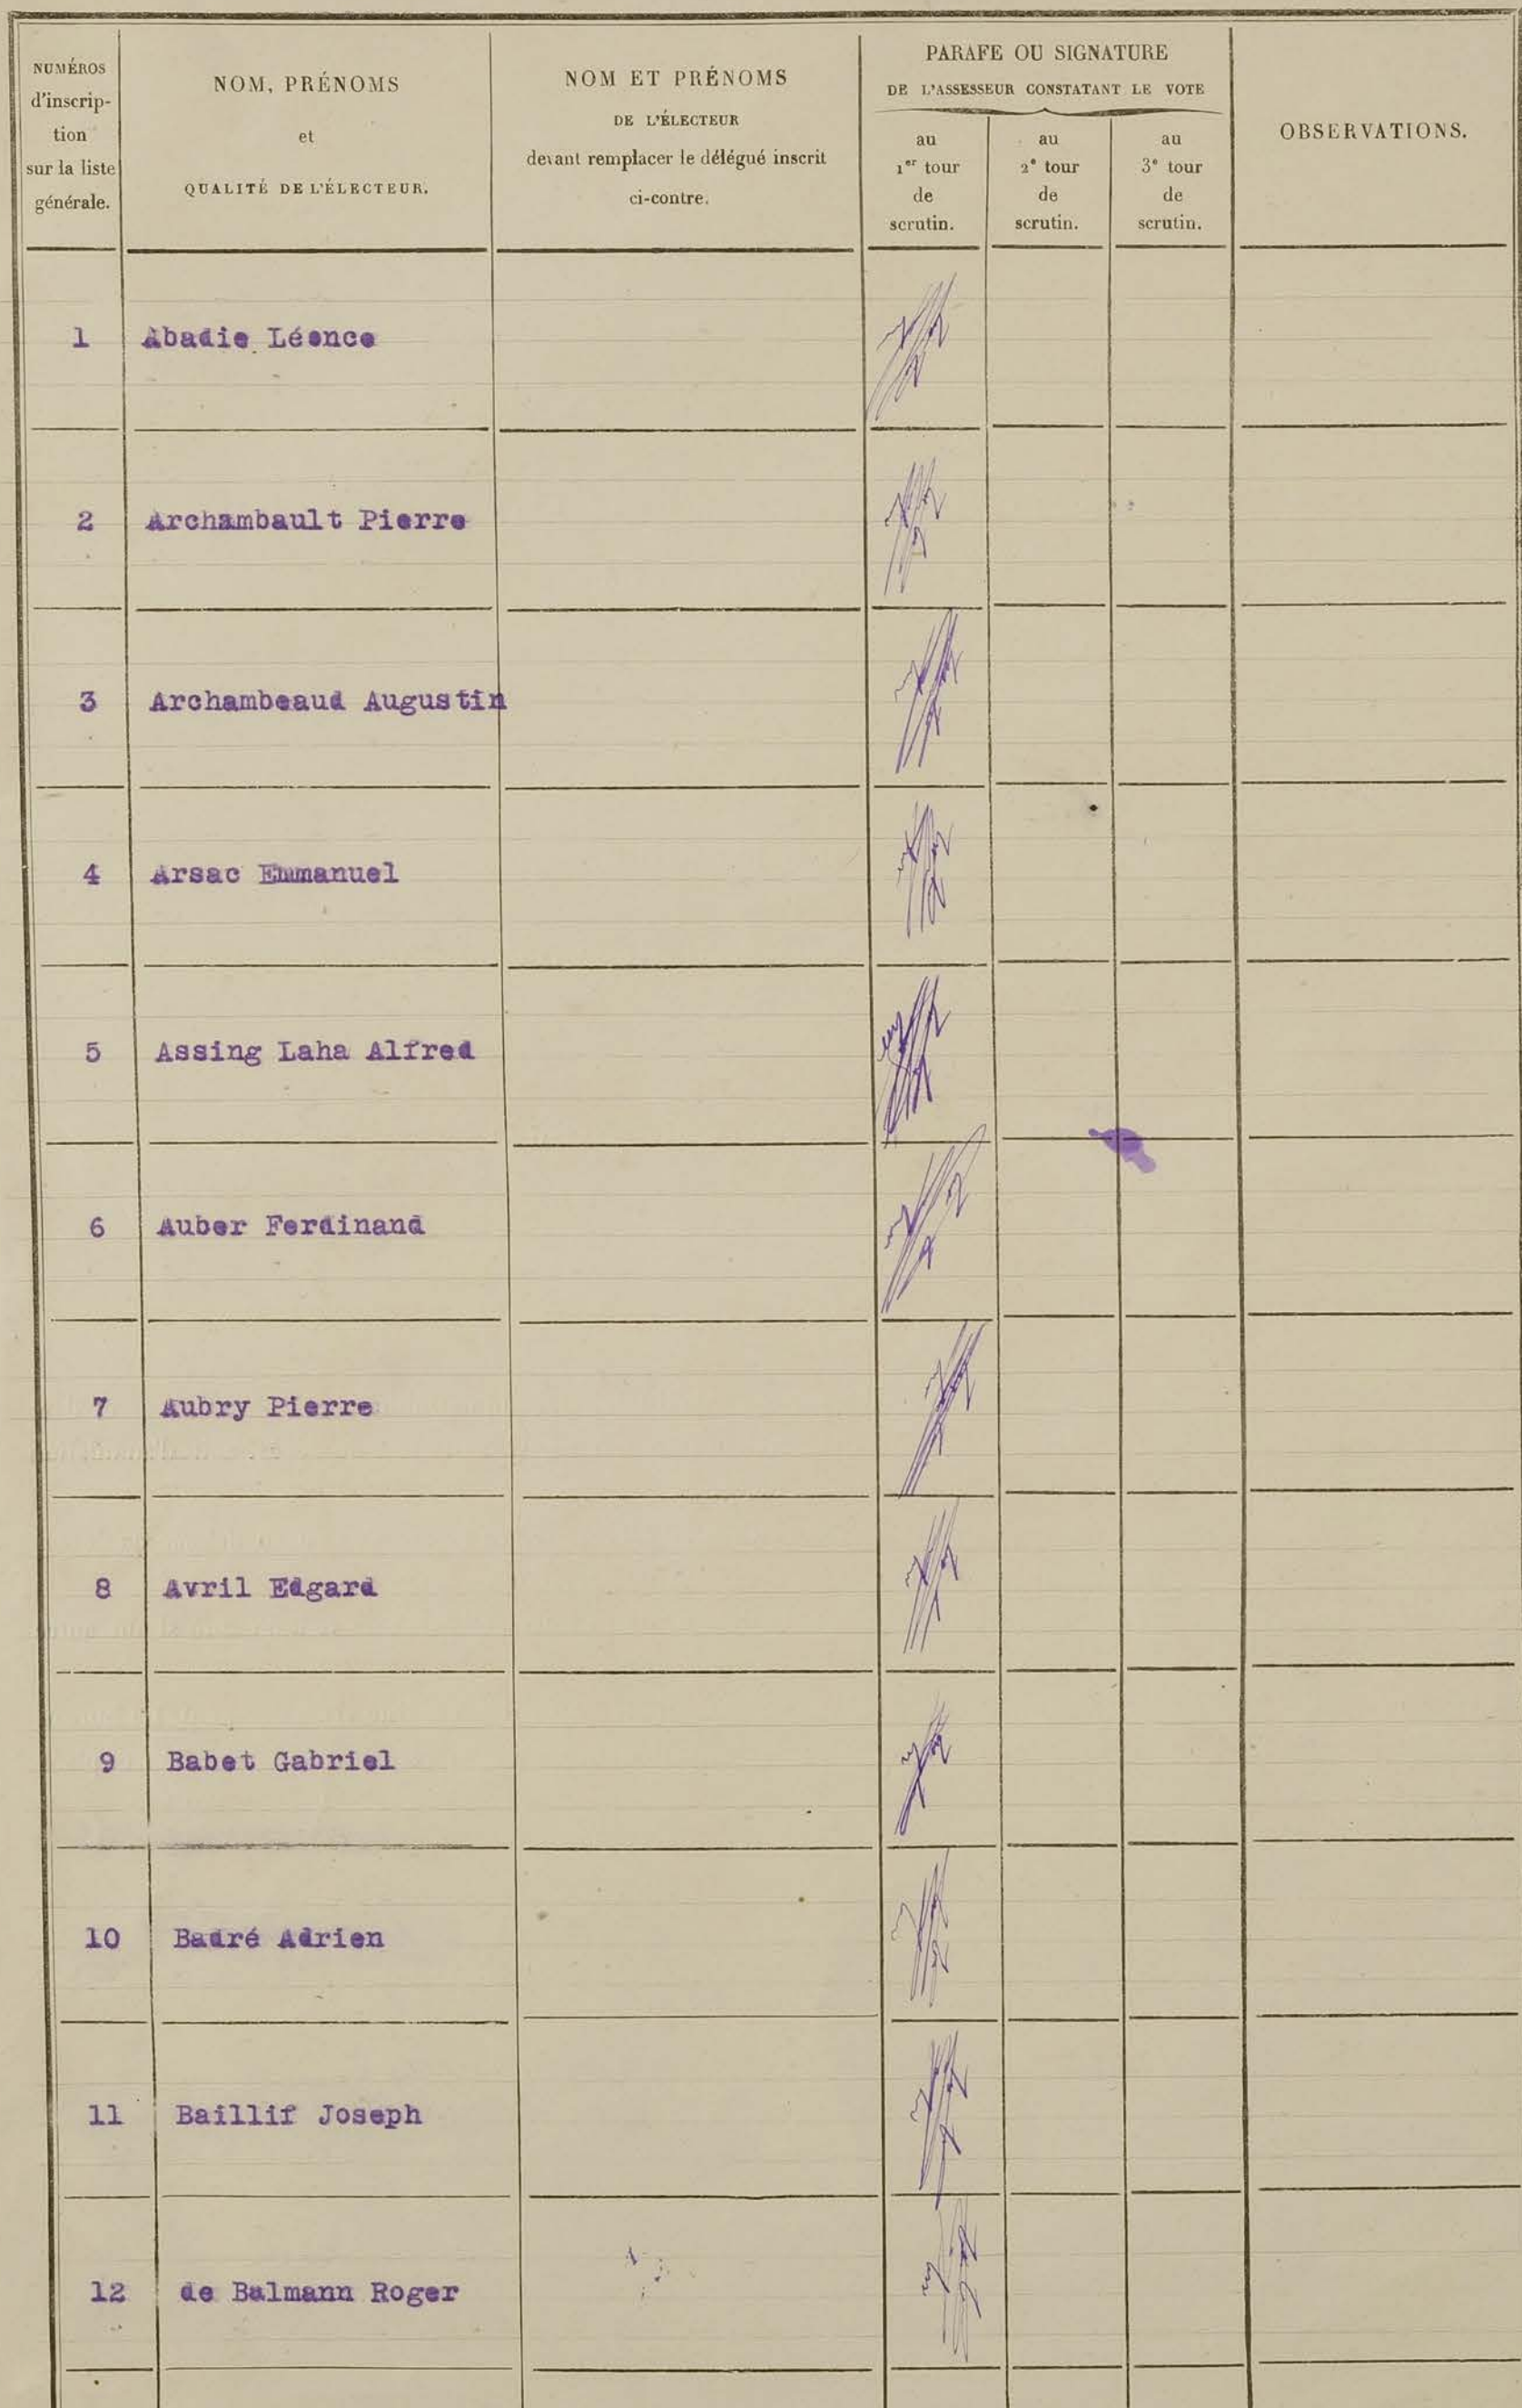 NUMÉROS
d'inscrip-
tion
sur la liste
générale.
NOM, PRÉNOMS
et
QUALITÉ DE L'ÉLECTEUR.
NOM ET PRÉNOMS
DE L'ÉLECTEUR
devant remplacer le délégué inscrit
ci-contre.
PARAFE OU SIGNATURE
DE L'ASSESSEUR CONSTATANT LE VOTE
au
1er tour
de
scrutin.
au
2e tour
de
scrutin.
au
3e tour
de
scrutin.
OBSERVATIONS.
1 Abadie Léonce
2 Archambault Pierre
3 Archambeaud Augustin
4 Arsac Emmanuel
5 Assing Laha Alfred
6 Auber Ferdinand
7 Aubry Pierre
8 Avril Edgard
9 Babet Gabriel
10 Badré Adrien
11 Baillif Joseph
12 de Balmann Roger